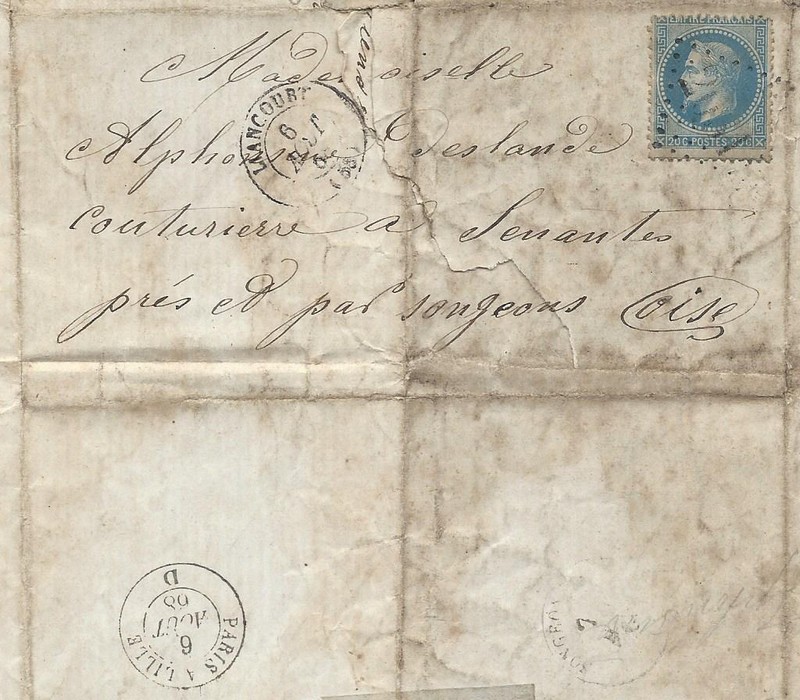 EMPIRE FRANÇAIS
20 C POSTES 20 C
Mademoiselle
LIANCOURT
6
AOUT
68
Alphonsine Deslande
couturierre a Senantes
près et par songeons Oise
PARIS A LILLE
6
AOUT
68
D
SONGEO
7